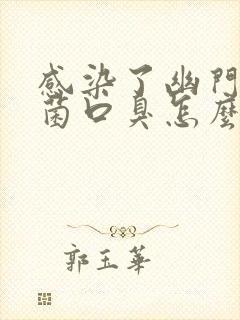 感染了幽門
菌口臭怎麼
郭玉華